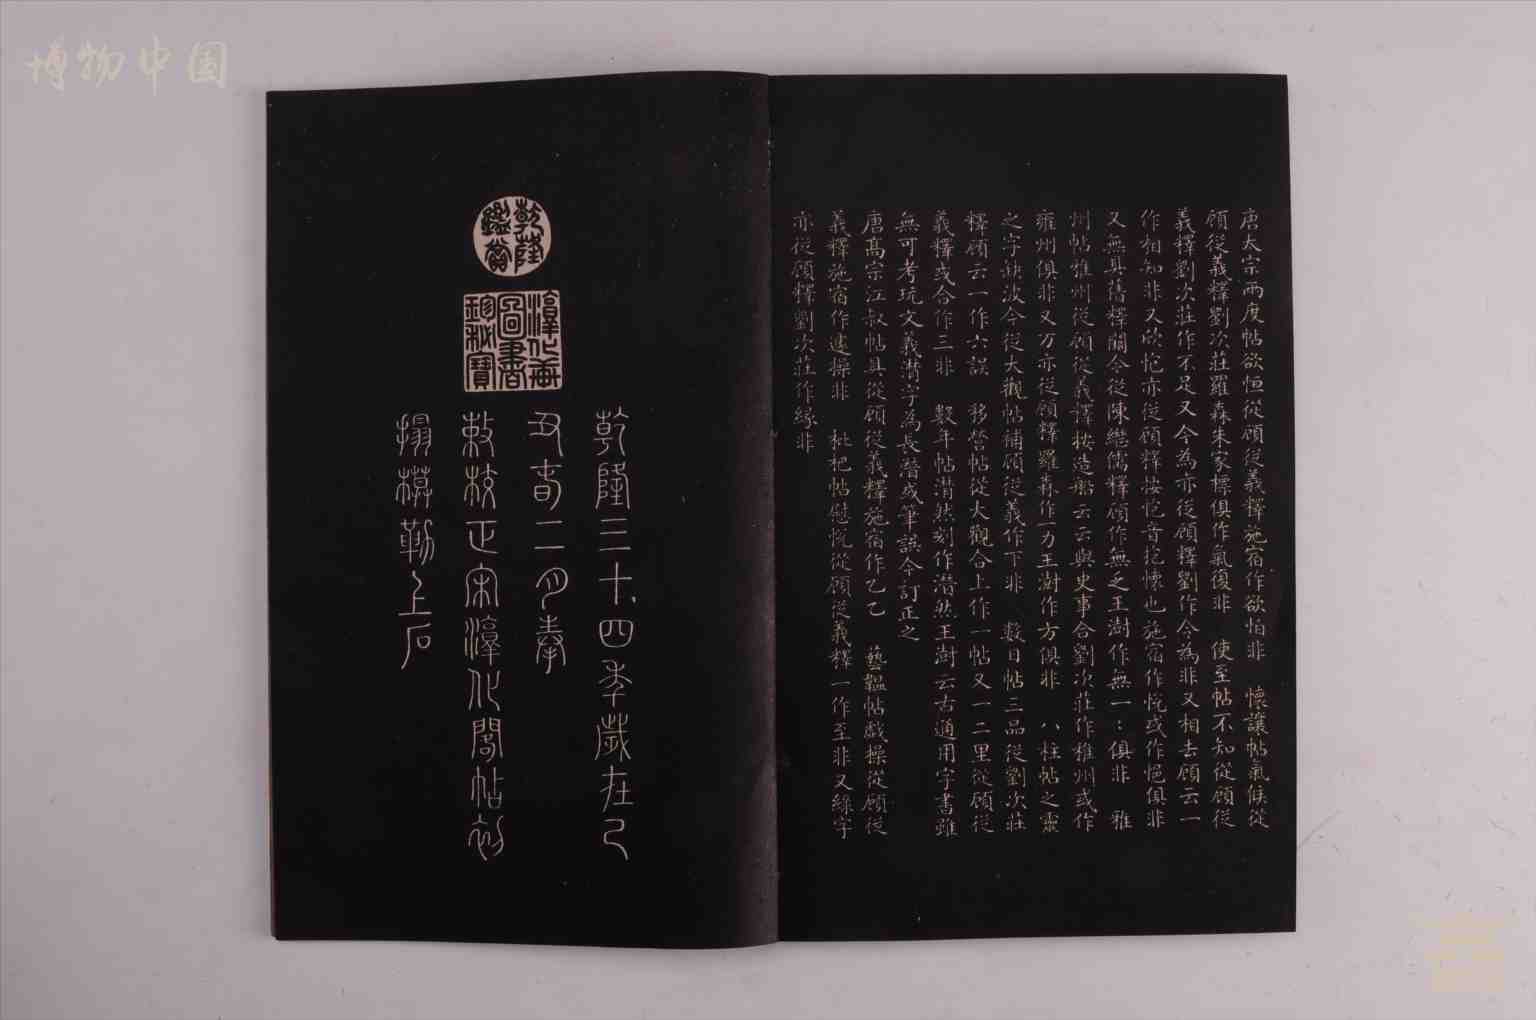 博物中国
唐太宗兩度帖欲恒從顧從義釋施宿作欲怕非 懷讓帖氣候從
顧從義釋劉次莊羅森朱家標俱作氣復非 使至帖不知從顧從
義釋劉次莊作不足又今為亦從顧釋劉作令為非又相去顧云一
作相知非又欣怳亦從顧釋按怳音怳懷也施宿作恱或作悒俱非
又無具舊釋闕今從陳繼儒釋顧作無乏王澍作無一:俱非 雅
州帖雅州從顧從義釋按造船云云與史事合劉次莊作稚州或作
雍州俱非又万亦從顧釋羅森作力王澍作方俱非 八柱帖之靈
之字缺波今從大觀帖補顧從義作下非 數日帖三品從劉次莊
釋顧云一作六誤 移營帖從大觀合上作一帖又一二里從顧從
義釋或合作三非 數年帖潸然刻作潛然王澍云古通用字書雖
無可考玩文義潸字為長潛或筆誤今訂正之
唐高宗江叔帖具從顧從義釋施宿作乙乙 藝韞帖戲操從顧從
義釋施宿作遽操非 枇杷帖慰悅從顧從義釋一作至非又緣字
亦從顧釋劉次莊作緣非
乾隆鑑賞
淳化軒圖書珍秘寶
乾隆三十四年歲在己
丑春二月奉
敕校正宋淳化閣帖初
搨模勒上石